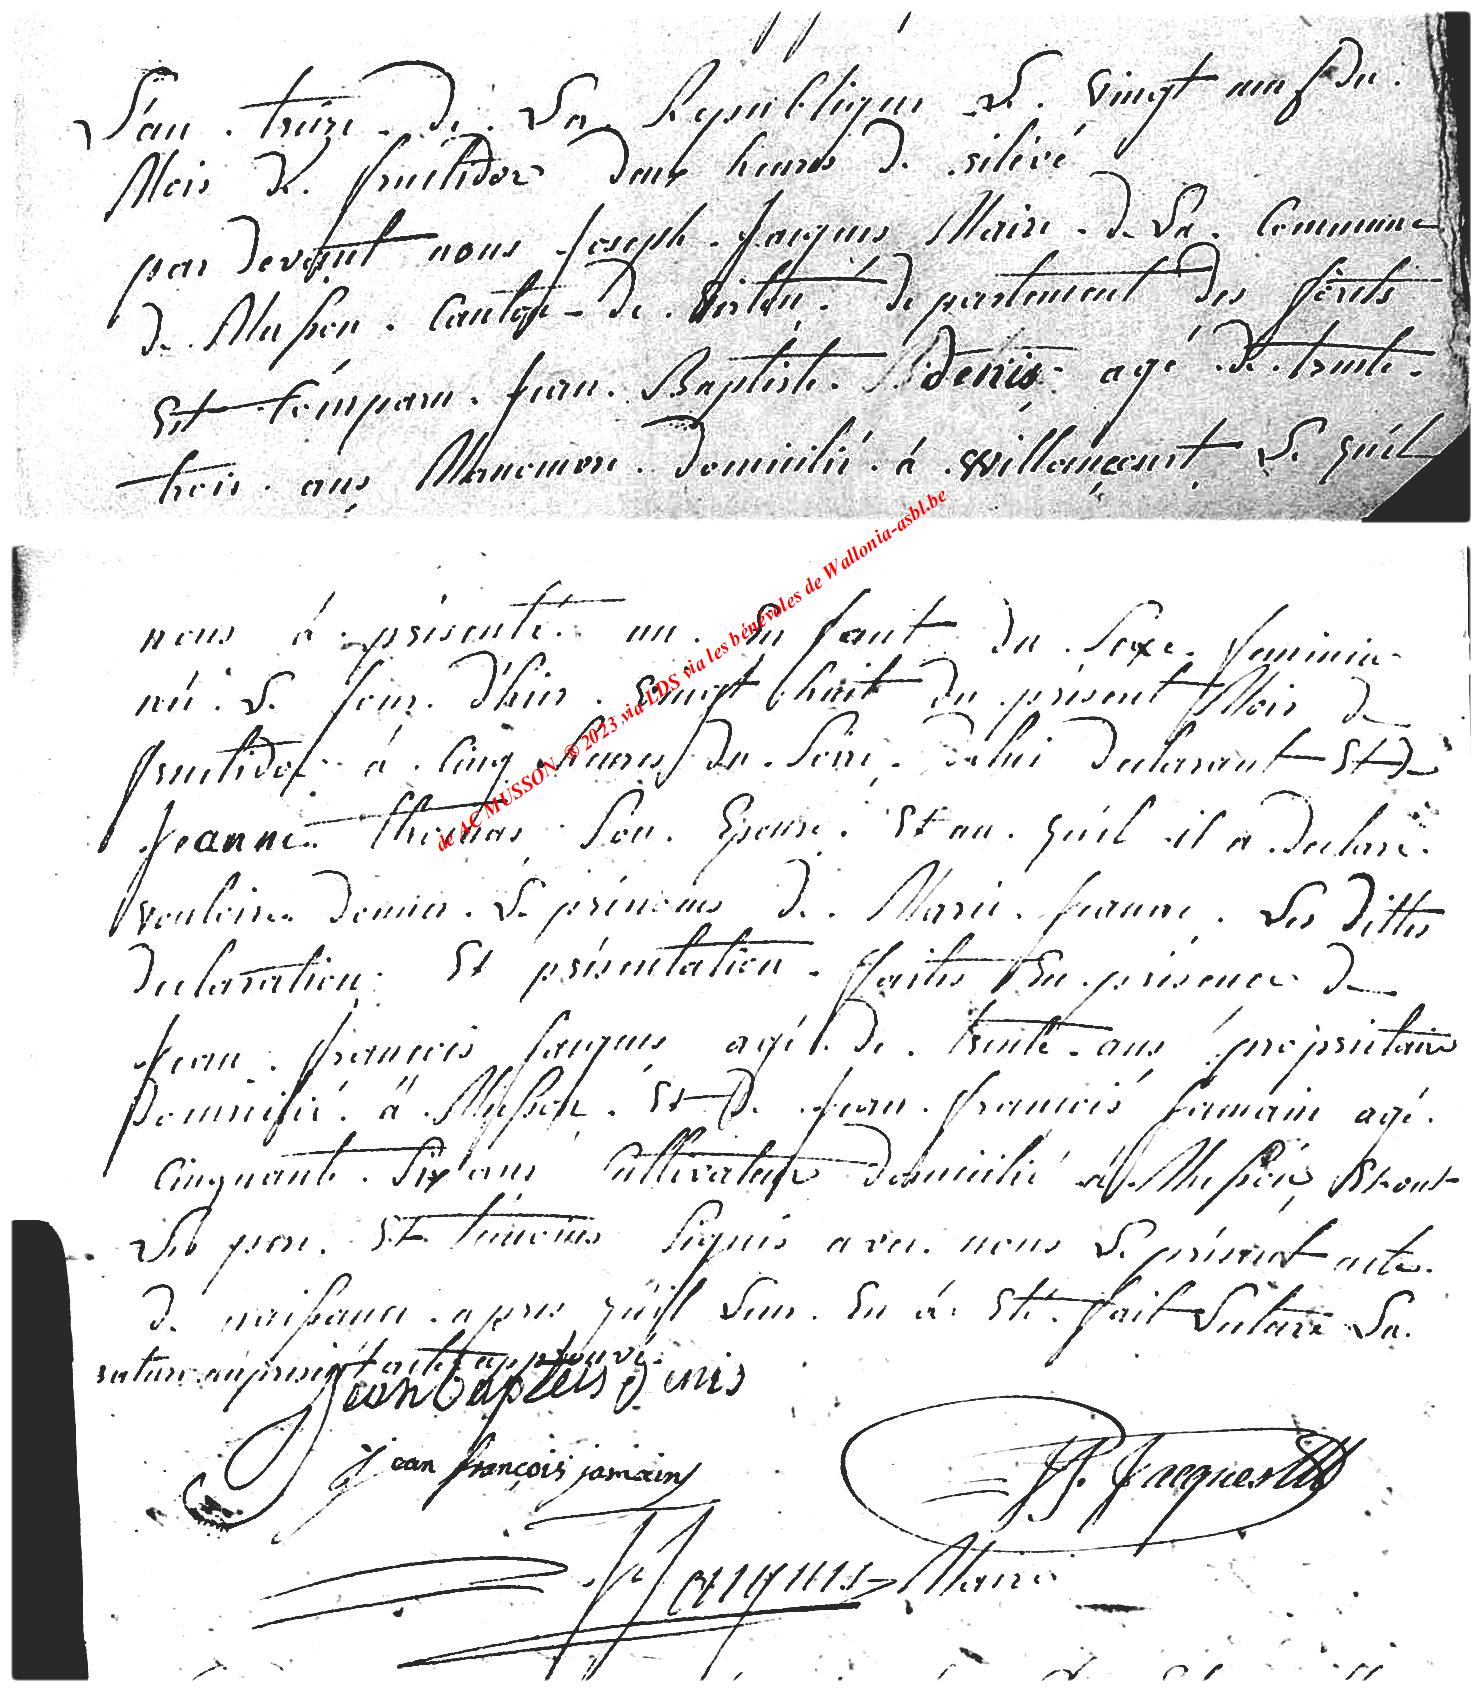 L'an treize de La Republique Le Vingt neuf du
Mois de fructidor deux heures de relévé
par devant nous Joseph Jacques Maire de La Commune
de Musson Canton de Virton departement des forêts
Est Comparu Jean Baptiste Denis agé de trente
trois ans Manoeuvre domicilié à Willancourt Lequel
nous à présenté un Enfant du Sexe feminin
né Le Jour d'hier Vingt huit du présent Mois de
fructidor à Cinq heures du Soire de lui declarant Et de
Jeanne thomas Son Epouse Et au quel il a declaré
vouloire donner Le prénoms de Marie Jeanne Les dittes
declaration Et présentation faites En présence de
Jean françois Jacques agé de trente ans propriétaire
Domicilié à Musson Et de Jean françois Jamain agé
Cinquante Six ans Cultivateur domicilié à Musson Et ont
Les pere Et temoins Signés avec nous Le présent acte
de naissance apres qu'il Leur En à Eté fait Lecture La
rature au present acte approuvé
Jean baptiste denis
jean françois jamain
JF Jacques
JJacques Maire
de AC MUSSON ® 2023 via LDS via les bénévoles de Wallonia-asbl.be